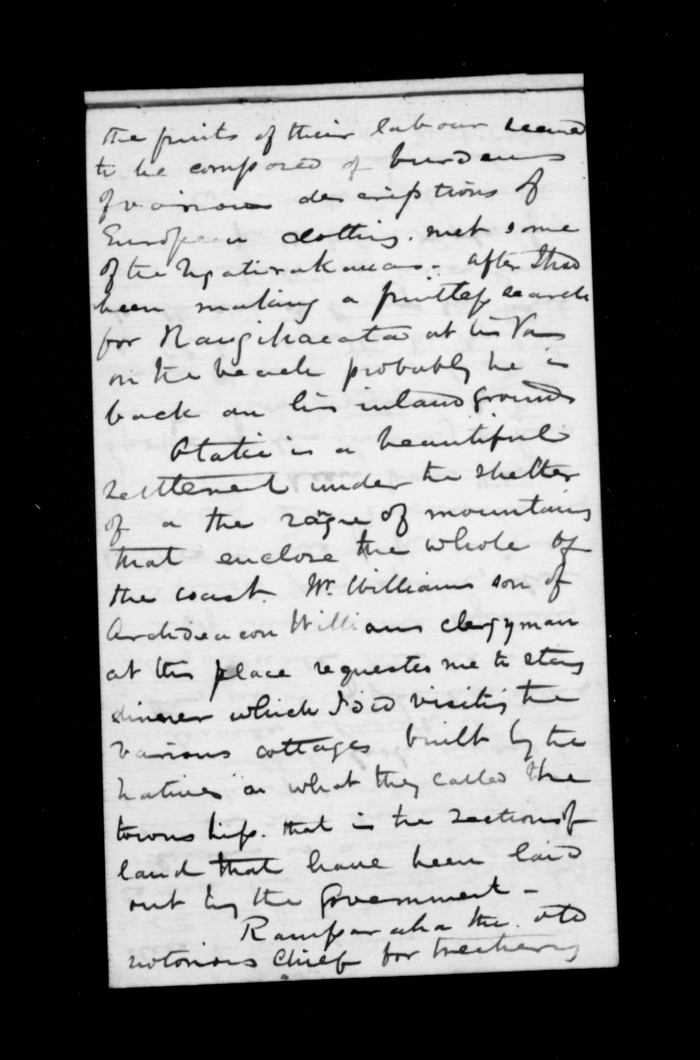 the fruits of their labour seemed
to be composed of burdens
of various descriptions of
European clothing. met some
of the Ngatiraukauas. After I had
been making a fruitless search
for Rangihaeata at his
on the beach probably he is
back on his inland grounds
Otaki is a beautiful
settlement under the shelter
of a the range of mountains
that enclose the whole of
the coast. Mr. Williams son of
Archdeacon Williams clergyman
at this place requested me to stay
dinner which I did visiting the
various cottages built by the
natives on what they called the
township. that is the sections of
land that have been laid
out by the Government -
Rauparaha the old
notorious Chief for treachery